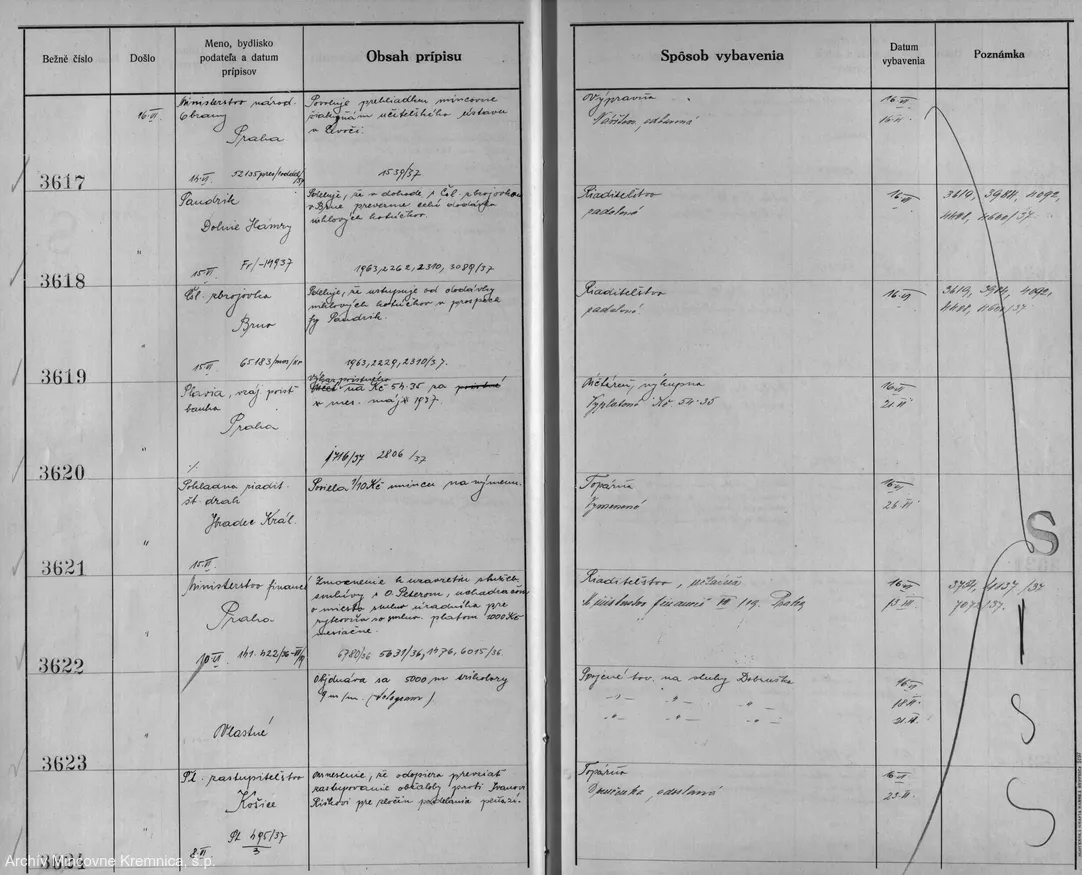 Bežné číslo
Došlo
Meno, bydlisko
podateľa a datum
prípisov
Obsah prípisu
Spôsob vybavenia
Datum
vybavenia
Poznámka
16 VI.
Ministerstvo národ.
Obrany
Praha
14. VI. 52135 pres/
Povoľuje prehliadku mincovne
učiteľského ústavu
v Levoči.
1539/37
Výpravňa
16 VI
3617
Sandrik
Dolnie Hámry
15. VI. Fr/-1937
Sdeľuje, že v dohode s Čsl. zbrojovkou
v Brne prevezme celú dodávku
niklových kotúčkov.
1963, 2262, 2310, 3089/37
Riaditeľstvo
založené
16 VI
3619, 3984, 4092,
4491, 4600/37.
3618
Čsl. zbrojovka
Brno
15. VI. 65183/mos/
Sdeľuje, že ustupuje od dodávky
niklových kotúčkov v prospech
fy Sandrik.
1963, 2229, 2310/37.
Riaditeľstvo
založené.
16. VI
3619, 3984, 4092,
4491, 4600/37.
3619
Slavia, vzáj. poist.
banka
Praha
Výkaz poistného
na Kč 54.35 za
v mes. máj 1937.
1716/37 2806/37
Účtáreň, výkupna
Vyplatené Kč 54.35
16 VI
21. VI
3620
Pokladna riadit.
št. drah
Hradec Král.
15. VI.
Posiela 1/10 Kč mincu na výmenu.
Topáreň
Vymenené
16 VI
26. VI
S
3621
Ministerstvo financií
Praha
10. VI. 141.422/36-III/19
Zmocnenie k uzavretiu služeb.
smluvy s O. Peterom, uchádzačom
o miesto smluv. úradníka pre
rytectvo so smluv. platom 1000 Kč
mesačne.
6780/36 5631/36, 1476, 6015/36.
Riaditeľstvo, účtáreň
Ministerstvo financií III/19. Praha
16 VI
13. VII.
3721, 4037/37
7073/37.
3622
Vlastné
Objednáva sa 5000 m trikolory
9 m/m. (telegram)
Spojené tov. na stuhy Dobruška
16 VI
18. VI.
21. VI.
S
3623
Št. zastupiteľstvo
Košice
8. VI St 495/37
3
Uznesenie, že odopiera prevziať
zastupovanie obžaloby proti Ivanovi
pre zločin padelania peňazí.
Topáreň
odoslané
16 VI
23. VI.
S
3624
Archív Mincovne Kremnica, š.p.